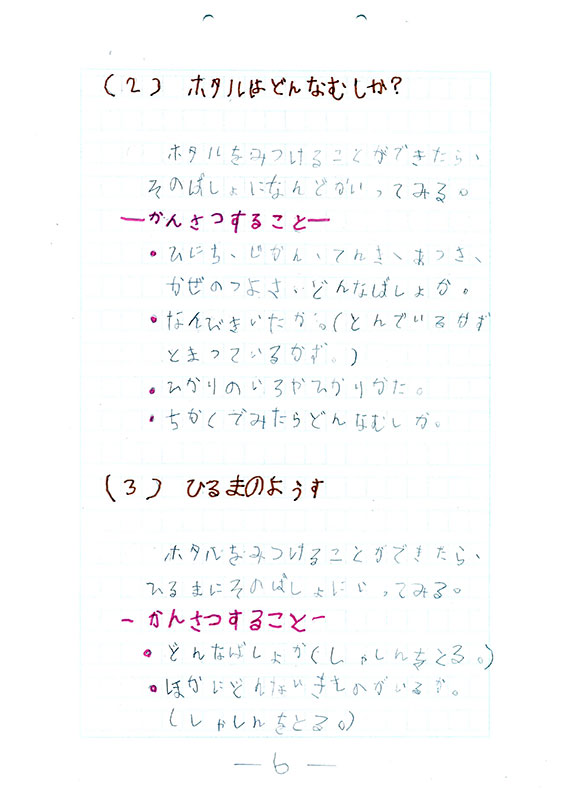 (2) ホタルはどんなむしか?
ホタルをみつけることができたら、
そのばしょになんどかいってみる。
ーかんさつすることー
・ひにち、じかん、てんき、あつさ、
かぜのつよさ、どんなばしょか。
・なんびきいたか。(とんでいるかず
とまっているかず。)
・ひかりのいろやひかりかた。
・ちかくでみたらどんなむしか。
(3) ひるまのようす
ホタルをみつけることができたら、
ひるまにそのばしょにいってみる。
ーかんさつすることー
・どんなばしょか(しゃしんをとる。)
・ほかにどんないきものがいるか。
(しゃしんをとる。)
ー6ー